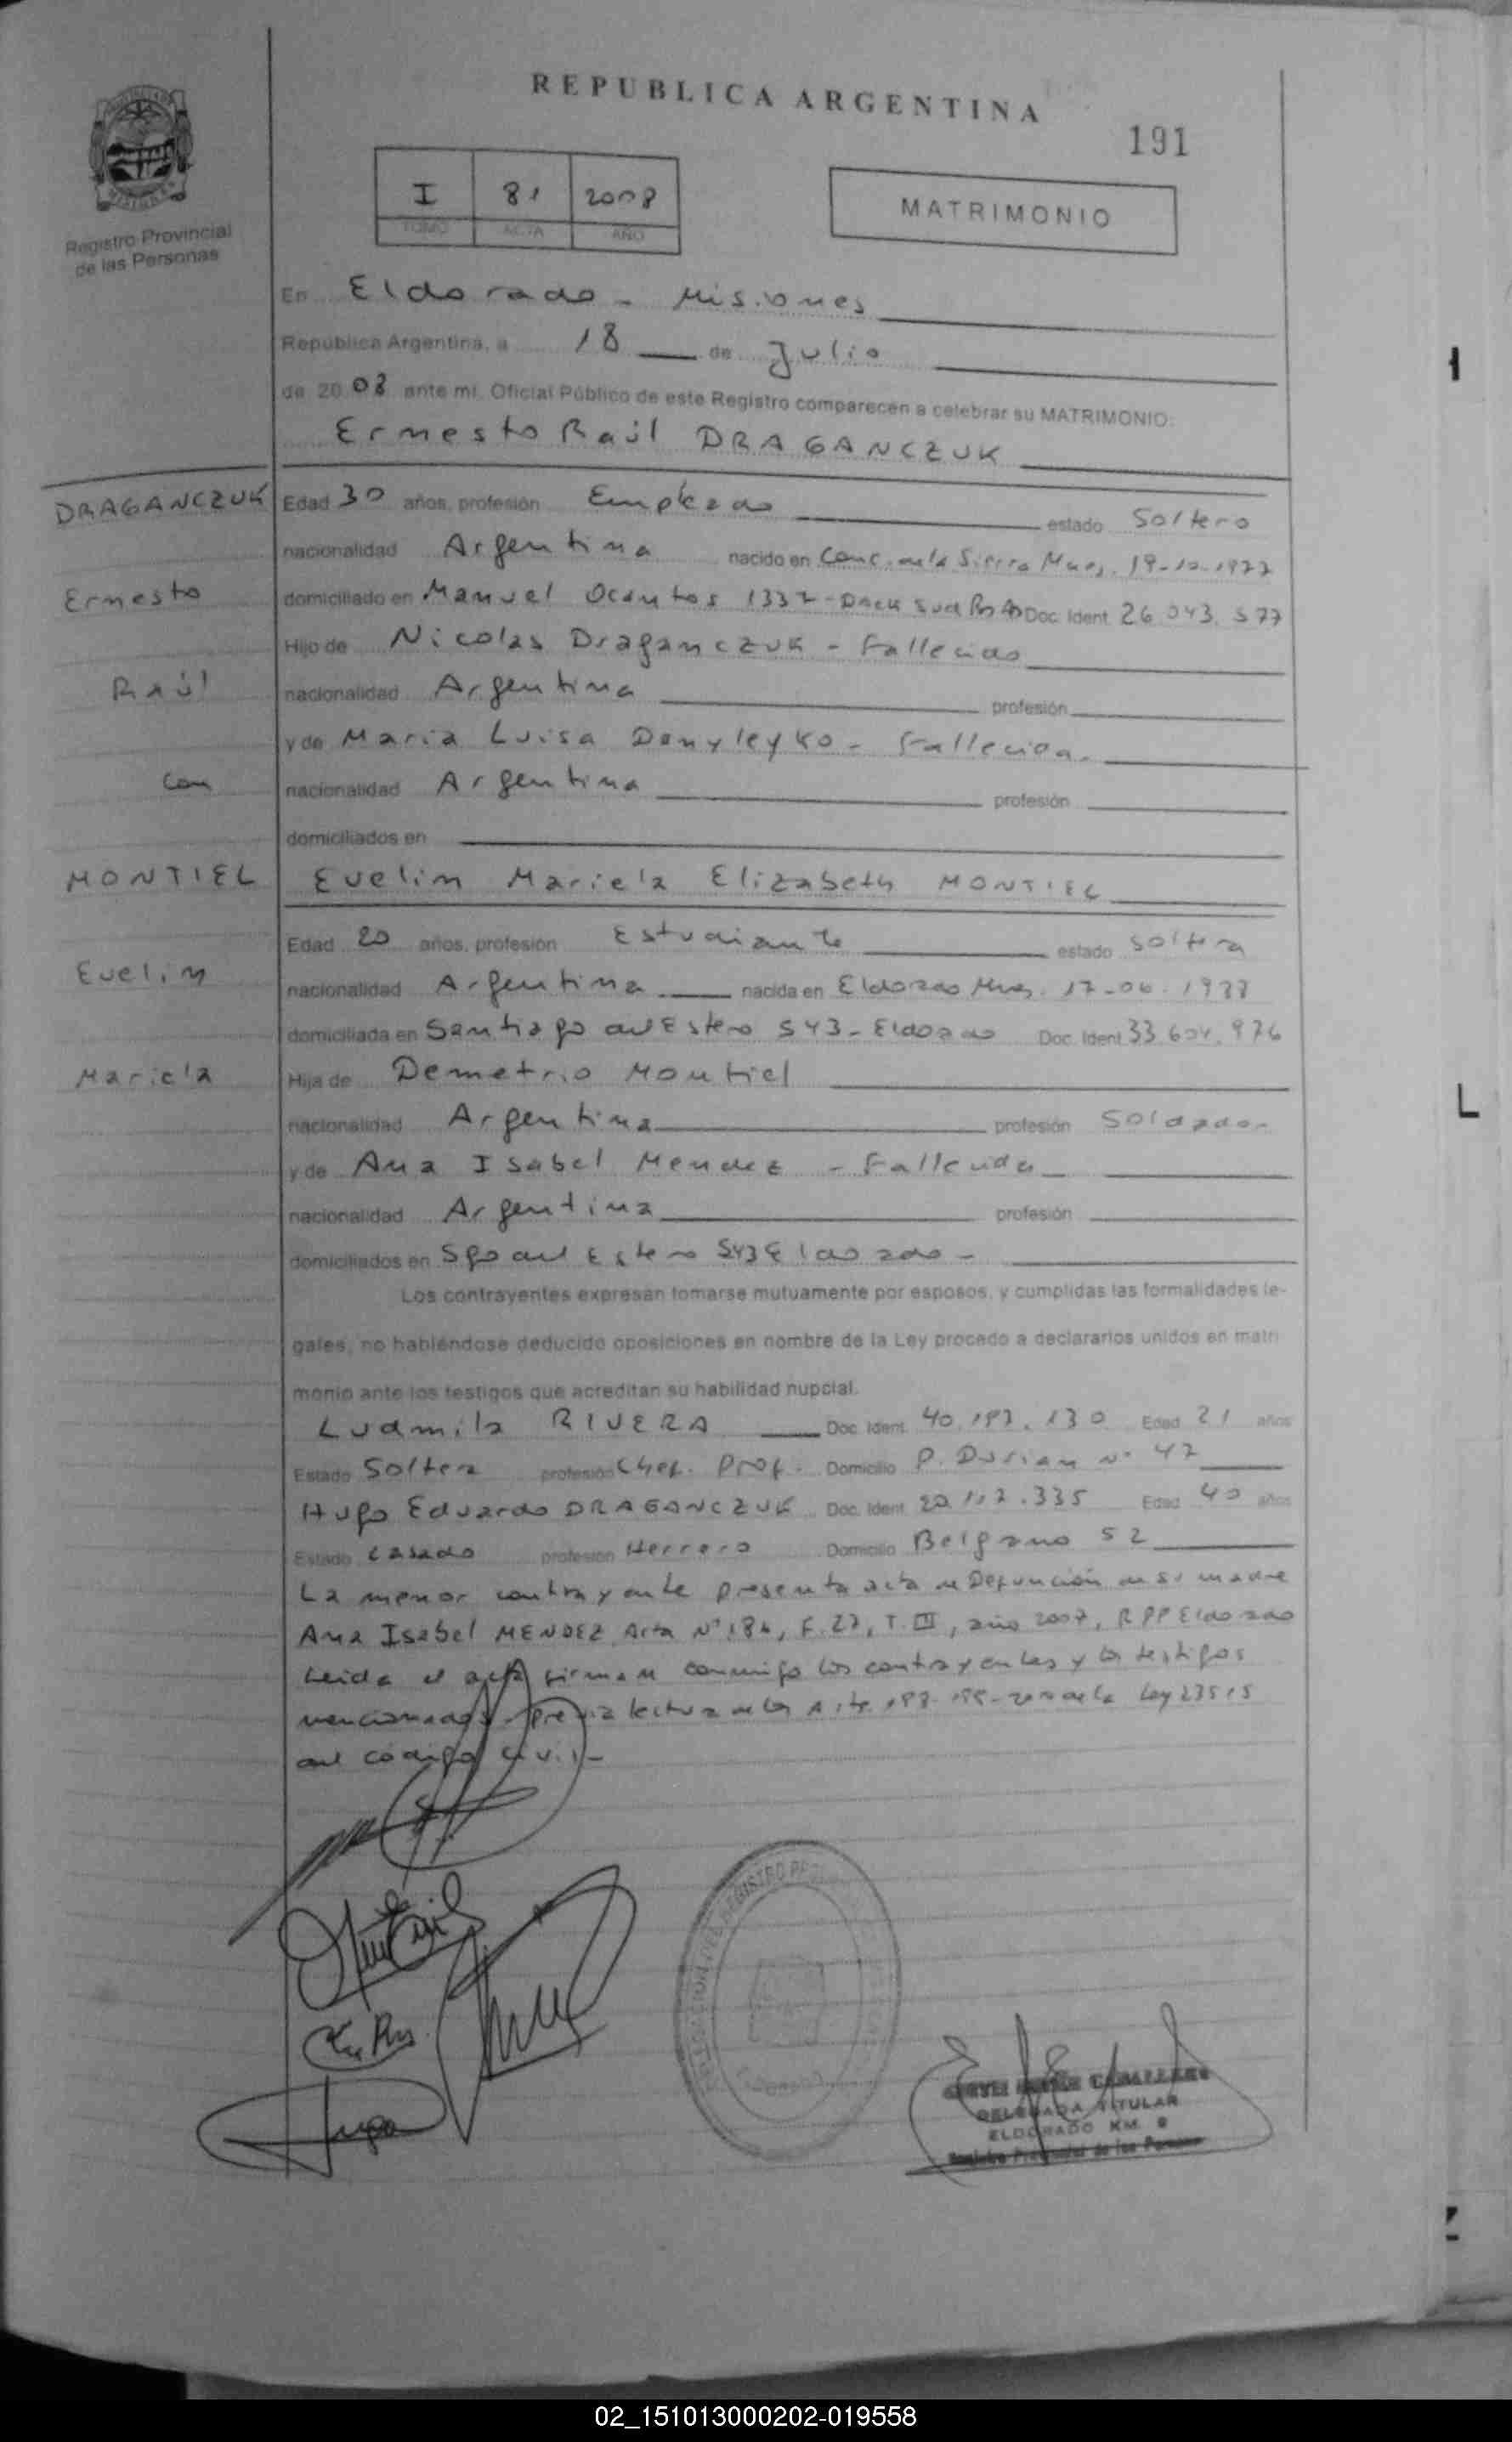 REPUBLICA ARGENTINA
191
I 81 2008
TOMO ACTA AÑO
MATRIMONIO
Registro Provincial
de las Personas
En Eldorado - Misiones
República Argentina, a 18 de Julio
de 2008 ante mi, Oficial Público de este Registro comparecen a celebrar su MATRIMONIO:
Ernesto Raúl DRAGANCZUK
DRAGANCZUK
Edad 30 años, profesión Empleado estado Soltero
nacionalidad Argentina nacido en Conc. de la Sierra Mnes. 19-10-1977
Ernesto
domiciliado en Manuel Ocantos 1337 - Dock Sud Bs As Doc. Ident. 26.043.577
Hijo de Nicolas Draganczuk - Fallecido
Raúl
nacionalidad Argentina profesión
y de Maria Luisa Danyleyko - Fallecida.
con
nacionalidad Argentina profesión
domiciliados en
MONTIEL
Evelin Mariela Elizabeth MONTIEL
Edad 20 años, profesión Estudiante estado soltera
Evelin
nacionalidad Argentina nacida en Eldorado Mnes. 17-06-1988
domiciliada en Santiago del Estero 543 - Eldorado Doc. Ident. 33.604.976
Mariela
Hija de Demetrio Montiel
nacionalidad Argentina profesión Soldador
y de Ana Isabel Mendez - Fallecida
nacionalidad Argentina profesión
domiciliados en Sgo del Estero 543 Eldorado -
Los contrayentes expresan tomarse mutuamente por esposos, y cumplidas las formalidades le-
gales, no habiéndose deducido oposiciones en nombre de la Ley procedo a declararlos unidos en matri
monio ante los testigos que acreditan su habilidad nupcial.
Ludmila RIVERA Doc. Ident. 40.197.130 Edad 21 años
Estado Soltera profesión Chef. Prof. Domicilio P. Durian Nº 47
Hugo Eduardo DRAGANCZUK Doc. Ident. 20.117.335 Edad 40 años
Estado casado profesión Herrero Domicilio Belgrano 52
La menor contrayente presenta acta de Defunción de su madre
Ana Isabel MENDEZ Acta Nº 184, F. 27, T. III, año 2007, RPP Eldorado
Leida el acta firman conmigo los contrayentes y los testigos
mencionados previa lectura de los Arts. 198-199-200 de la Ley 23515
del código civil -
REGISTRO
CABALLERO
DELEGADA TITULAR
ELDORADO KM. 9
Registro Provincial de las Personas
02_151013000202-019558